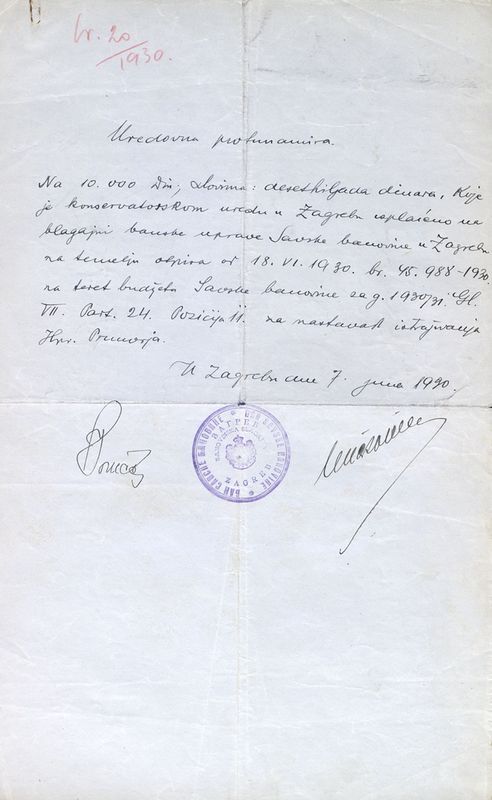 br. 20
/1930.
Uredovna protunamira.
Na 10.000 Din, slovima: desethiljada dinara, koje
je konservatorskom uredu u Zagrebu isplaćeno na
blagajni banske uprave Savske banovine u Zagrebu
na temelju otpisa od 18. VI. 1930. br. 45.988-1930.
na teret budžeta Savske banovine za g. 1930/31. Gl.
VII. Part. 24. Pozicija 11. na nastavak istraživanja
Hrv. Primorja.
U Zagrebu dne 7. jula 1930.
БАН САВСКЕ БАНОВИНЕ * BAN SAVSKE BANOVINE *
ЗАГРЕБ
ZAGREB